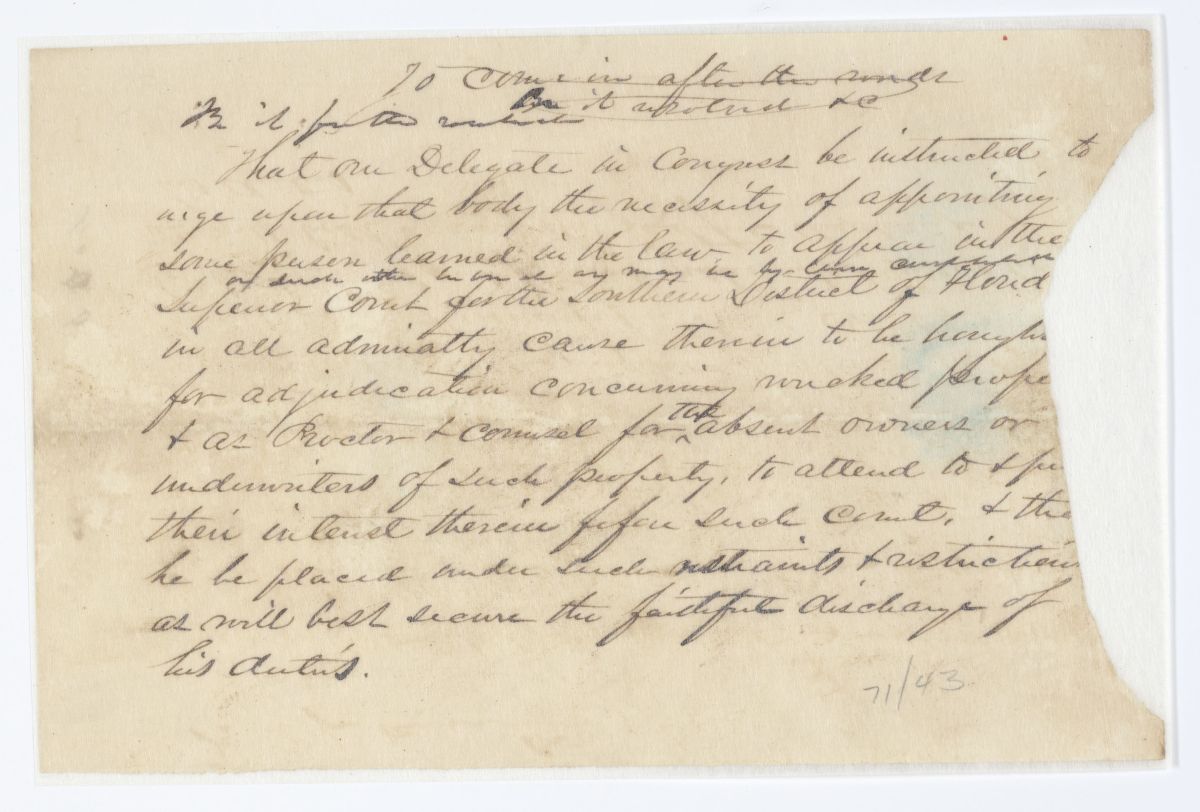 To come in after the words
Be it resolved &c
Be it further
That our Delegate in Congress be instructed to
urge upon that body the necessity of appointing
some person learned in the law to appear in the
or such other
may be by
Superior Court for the Southern District of Florid
in all admiralty cause therein to be brough
for adjudication concerning wrecked prope
the
& as Proctor & counsel for absent owners or
underwriters of such property, to attend to &
their interest therein before such court, & tha
he be placed under such restraints & restrictions
as will best secure the faithful discharge of
his duties.
71/43